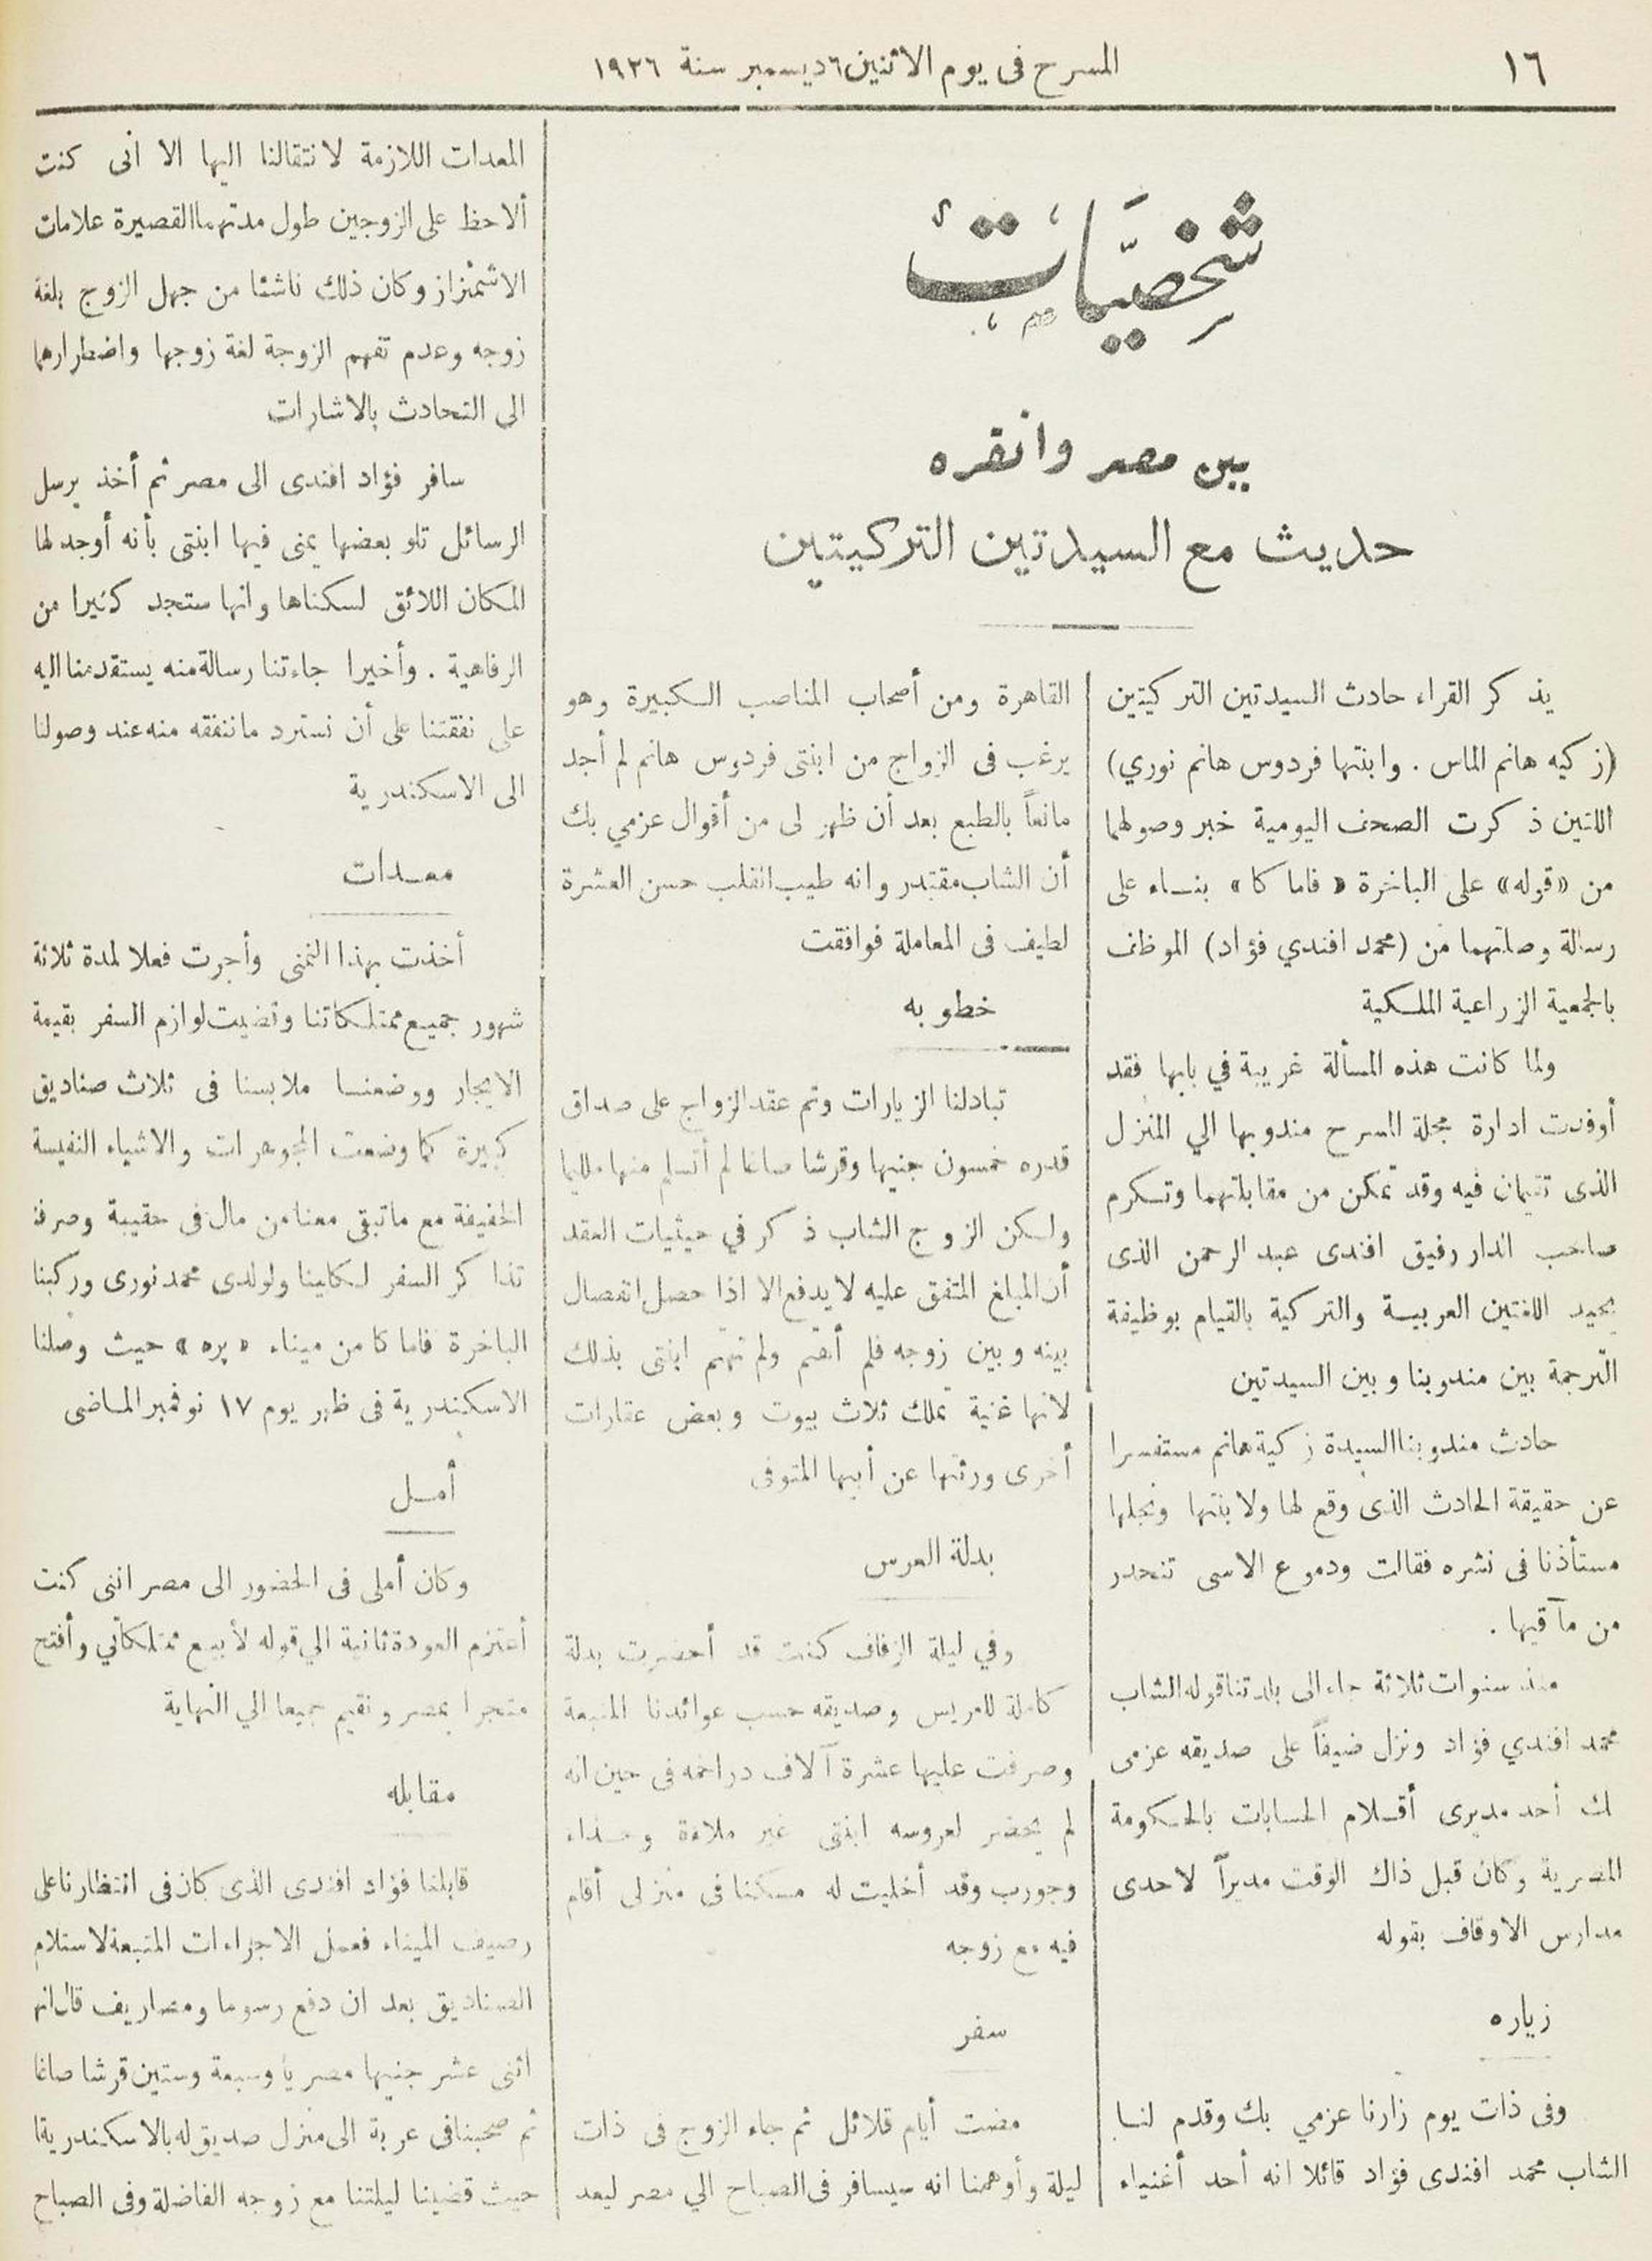 ١٦
المسرح فى يوم الاثنين ٦ ديسمبر سنة ١٩٢٦
شخصيَّات
بين مصر وانقره
حديث مع السيدتين التركيتين
يذكر القراء حادث السيدتين التركيتين
(زكيه هانم الماس . وابنتها فردوس هانم نوري)
اللتين ذكرت الصحف اليومية خبر وصولهما
من «قوله» على الباخرة «فاماكا» بنساء على
رسالة وصلتهما من (محمد افندي فؤاد) الموظف
بالجمعية الزراعية الملكية
ولما كانت هذه المسألة غريبة في بابها فقد
أوفدت ادارة مجلة المسرح مندوبها الي المنزل
الذى تقيمان فيه وقد تمكن من مقابلتهما وتكرم
صاحب الدار رفيق افندى عبد الرحمن الذى
يجيد اللغتين العربية والتركية بالقيام بوظيفة
الترجمة بين مندوبنا وبين السيدتين
حادث مندوبنا السيدة زكية هانم مستفسرا
عن حقيقة الحادث الذى وقع لها ولابنتها ونجلها
مستأذنا فى نشره فقالت ودموع الاسى تنحدر
من مآقيها .
منذ سنوات ثلاثة جاء الى بلدتنا قوله الشاب
محمد افندي فؤاد ونزل ضيفاً على صديقه عزمى
بك أحد مديرى أقلام الحسابات بالحكومة
المصرية وكان قبل ذاك الوقت مديراً لاحدى
مدارس الاوقاف بقوله
زياره
وفى ذات يوم زارنا عزمي بك وقدم لنا
الشاب محمد افندى فؤاد قائلا انه أحد أغنياء
القاهرة ومن أصحاب المناصب الكبيرة وهو
يرغب فى الزواج من ابنتى فردوس هانم لم أجد
مانعاً بالطبع بعد أن ظهر لى من أقوال عزمي بك
أن الشاب مقتدر وانه طيب القلب حسن العشرة
لطيف فى المعاملة فوافقت
خطوبه
تبادلنا الزيارات وتم عقد الزواج على صداق
قدره خمسون جنيها وقرشا صاغا لم أتسلم منها مليما
ولكن الزوج الشاب ذكر في حيثيات العقد
أن المبلغ المتفق عليه لا يدفع الا اذا حصل انفصال
بينه وبين زوجه فلم أهتم ولم تهتم ابنتى بذلك
لانها غنية تملك ثلاث بيوت وبعض عقارات
أخرى ورثتها عن أبيها المتوفى
بدلة العرس
وفي ليلة الزفاف كنت قد أحضرت بدلة
كاملة للعريس وصديقه حسب عوائدنا المتبعة
وصرفت عليها عشرة آلاف دراخمه فى حين انه
لم يحضر لعروسه ابنتى غير ملاءة وحذاء
وجورب وقد أخليت له مسكنا فى منزلى أقام
فيه مع زوجه
سفر
مضت أيام قلائل ثم جاء الزوج فى ذات
ليلة وأوهمنا انه سيسافر فى الصباح الي مصر ليعد
المعدات اللازمة لانتقالنا اليها الا أنى كنت
ألاحظ على الزوجين طول مدتهما القصيرة علامات
الاشمئزاز وكان ذلك ناشئا من جهل الزوج بلغة
زوجه وعدم تفهم الزوجة لغة زوجها واضطرارهما
الى التحادث بالاشارات
سافر فؤاد افندى الى مصر ثم أخذ يرسل
الرسائل تلو بعضها يمنى فيها ابنتى بأنه أوجد لها
المكان اللائق لسكناها وانها ستجد كثيرا من
الرفاهية . وأخيرا جاءتنا رسالة منه يستقدمنا اليه
على نفقتنا على أن نسترد ماننفقه منه عند وصولنا
الى الاسكندرية
معدات
أخذت بهذا التمنى وأجرت فعلا لمدة ثلاثة
شهور جميع ممتلكاتنا وقضيت لوازم السفر بقيمة
الايجار ووضعنا ملابسنا فى ثلاث صناديق
كبيرة كما وضعت المجوهرات والاشياء النفيسة
الخفيفة مع ماتبقى معنا من مال فى حقيبة وصرفت
تذاكر السفر لكلينا ولولدى محمد نورى وركبنا
الباخرة فاماكا من ميناء «بره» حيث وصلنا
الاسكندرية فى ظهر يوم ١٧ نوفمبر الماضى
أمل
وكان أملى فى الحضور الى مصر اننى كنت
أعتزم العودة ثانية الي قوله لأبيع ممتلكاتي وأفتح
متجرا بمصر ونقيم جميعا الي النهاية
مقابله
قابلنا فؤاد افندى الذى كان فى انتظارنا على
رصيف الميناء فعمل الاجراءات المتبعة لاستلام
الصناديق بعد ان دفع رسوما ومصاريف قال انها
اثنى عشر جنيها مصريا وسبعة وستين قرشا صاغا
ثم صحبنا فى عربة الى منزل صديق له بالاسكندرية
حيث قضينا ليلتنا مع زوجه الفاضلة وفى الصباح